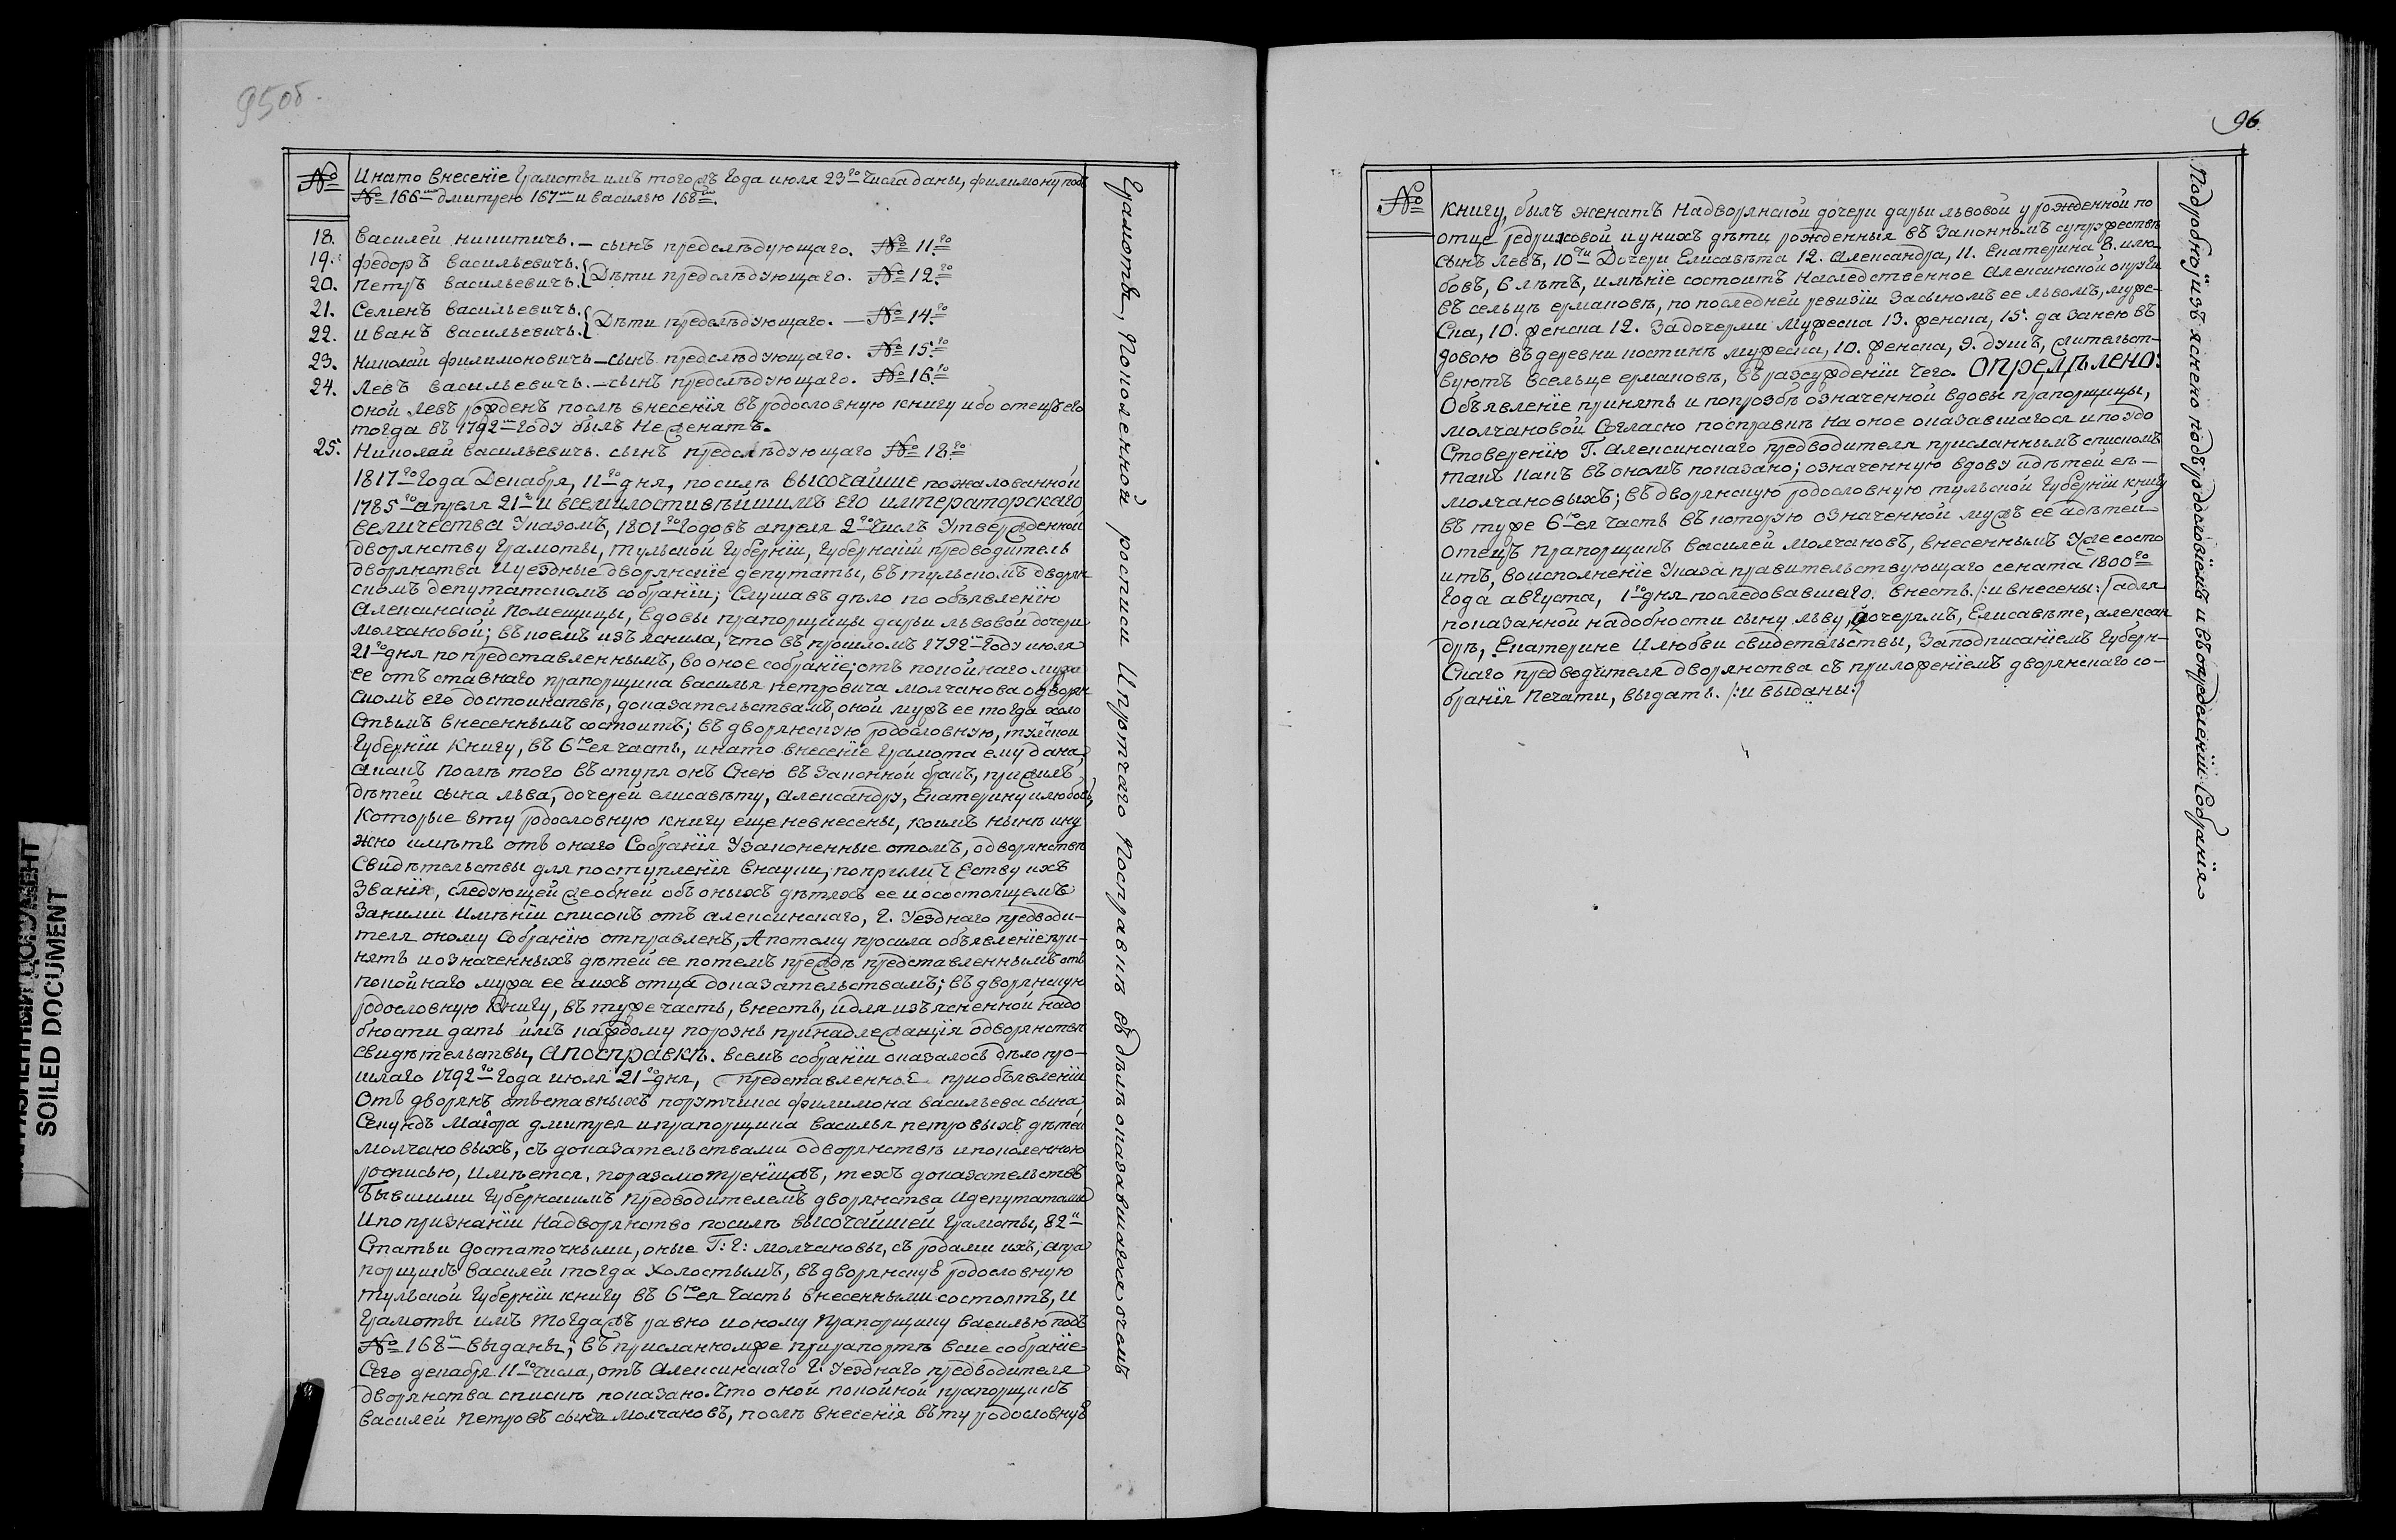 95об.
№
И нато внесенїе Грамоты имъ тогожъ Года июля 23го Числа даны, филимону подъ
№ 166мъ дмитрею 167мъ и василью 168мъ.
18. Василей никитичь. — сынъ предслѣдующаго. № 11го
19. Федоръ васильевичь.
20. Петръ васильевичь. Дѣти предслѣдующаго. № 12го
21. Семенъ васильевичь.
22. иванъ васильевичь. Дѣти предслѣдующаго. — № 14го
23. Николай филимоновичь — сынъ предслѣдующаго. № 15го
24. Левъ васильевичь. — сынъ предслѣдующаго. № 16го
оной левъ рожденъ послѣ внесенїя въ родословную книгу ибо отецъ его
тогда въ 1792мъ Году былъ не женатъ.
25. Николай васильевичь. сынъ предслѣдующаго № 18го
1817го Года Декабря, 11го дня, посилѣ высочайше пожалованной
1785го апреля 21го и всемилостивѣйшимъ его императорскаго,
величества Указомъ, 1801го Годовъ апреля 2го Числъ Утвержденной
дворянству Грамоты, тульской Губернїи, Губернскїй предводитель
дворянства и уездные дворянскїе депутаты, въ тульскомъ дворян
скомъ депутатскомъ собранїи; Слушавъ дѣло по объявленїю
Алексинской помещицы, вдовы прапорщицы дарьи львовой дочери
молчановой; въ коемъ изъяснила, что въ прошломъ 1792мъ Году июля
21го дня по представленнымъ, во оное собранїе; отъ покойнаго мужа
ее отъ ставнаго прапорщика василья петровича молчанова о дворян
скомъ его достоинствѣ, доказательствамъ, оной мужъ ее тогда холо
стымъ внесеннымъ состоитъ; въ дворянскую родословную, тульской
Губернїи Книгу, въ 6ю ея часть, и нато внесенїе Грамота ему дана,
а какъ послѣ того въ ступя онъ Снею въ Законной бракъ, прижилъ
дѣтей сына льва, дочерей елисавѣту, Александру, Екатерину и любовь,
Которые вту родословную книгу еще невнесены, коимъ нынѣ и ну
жно имѣть отъ онаго Собранїя Узаконенные отомъ, о дворянствѣ
Свидѣтельствы для поступленїя внауки, поприличЕству ихъ
Званїя, следующей же обней объ оныхъ дѣтяхъ ее и о состоящемъ
Заними Имѣнїи списокъ отъ алексинскаго, Г. Уезднаго предводи-
теля оному Собранїю отправленъ, А потому просила объявленїе при-
нять и означенныхъ дѣтей ее по темъ преждѣ представленнымъ отъ
покойнаго мужа ее а ихъ отца доказательствамъ; въ дворянскую
родословную Книгу, въ туже часть, внесть, и для изъясненной надо
бности дать имъ каждому порознь принадлежащїя о дворянствѣ
свидѣтельствы, а посправкѣ. всемъ собранїи оказалось дѣло про-
шлаго 1792го Года июля 21го дня, представленное приобъявленїи
Отъ дворянъ отъставныхъ порутчика филимона васильева сына,
Секундъ Маїора дмитрея и прапорщика василья петровыхъ дѣтей
молчановыхъ, съ доказательствами о дворянствѣ и поколенною
росписью, Имѣется, поразсмотренїи жъ, техъ доказательствъ
Бывшими Губернскимъ Предводителемъ дворянства И депутатами
И по признанїи на дворянство посилѣ высочайшей Грамоты, 82й
Статьи достаточными, оные Г: Г: молчановы, съ родами ихъ, а пра
порщикъ василей тогда холостымъ, въ дворянскую родословную
тульской Губернїи книгу въ 6ю ея Часть внесенными состоятъ, и
Грамоты имъ тогдажъ равно и оному прапорщику василью подъ
№ 168мъ выданы; въ присланномже прирапортѣ всие собранїе
Сего декабря 11го Числа, отъ Алексинскаго Г. Уезднаго предводителя
дворянства спискѣ показано. что оной покойной прапорщикъ
василей Петровъ сынъ Молчановъ, послѣ внесенїя въ ту родословную
Грамоты, Поколенной росписи И протчаго Посправкѣ въ дѣлѣ оказавшагося очемъ
96.
№
Книгу, былъ женатъ На дворянской дочери дарьи львовой урожденной по
отце редриковой, и унихъ дѣти рожденныя въ Законномъ супружествѣ
сынъ Левъ, 10ти Дочери Елисавѣта 12. Александра, 11. Екатерина 8. илю-
бовъ, 6 лѣтъ, имѣнїе состоитъ Наследственное Алексинской округи
въ сельцѣ ермаковѣ, по последней ревизїи Засыномъ ее львомъ, муже-
ска, 10. женска 12. Задочерми Мужеска 13. женска, 15. да Занею въ
довою въ деревни костинѣ мужеска, 10. женска, 9. душъ, жительст-
вуютъ всельце ермаковѣ, въ разсужденїи чего. Опредѣлено:
Объявленїе принять и попрозбѣ означенной вдовы прапорщицы,
молчановой Согласно посправкѣ на оное оказавшагося и по удо
Стоверенїю Г. Алексинскаго предводителя присланнымъ спискомъ
такъ Какъ въ ономъ показано; означенную вдову и дѣтей ее —
молчановыхъ; въ дворянскую родословную тульской Губернїи книгу
въ туже 6ю ея часть въ которую означенной мужъ ее а дѣтей
отецъ прапорщикъ василей молчановъ, внесеннымъ Уже состо
итъ, воисполненїе Указа правительствующаго сената 1800го
Года августа, 1го дня последовавшаго. внесть. /: и внесены: / а для
показанной надобности сыну льву, дочерямъ, Елисавѣте, александ
дрѣ, Екатерине И любви свидетельствы, Заподписанїемъ Губерн-
Скаго предводителя дворянства съ приложенїемъ дворянскаго со-
бранїя Печати, выдать. /: и выданы: /
Подробну изъяснено подъ родословїемъ и въ опредѣленїи: Собранїя
SOILED DOCUMENT